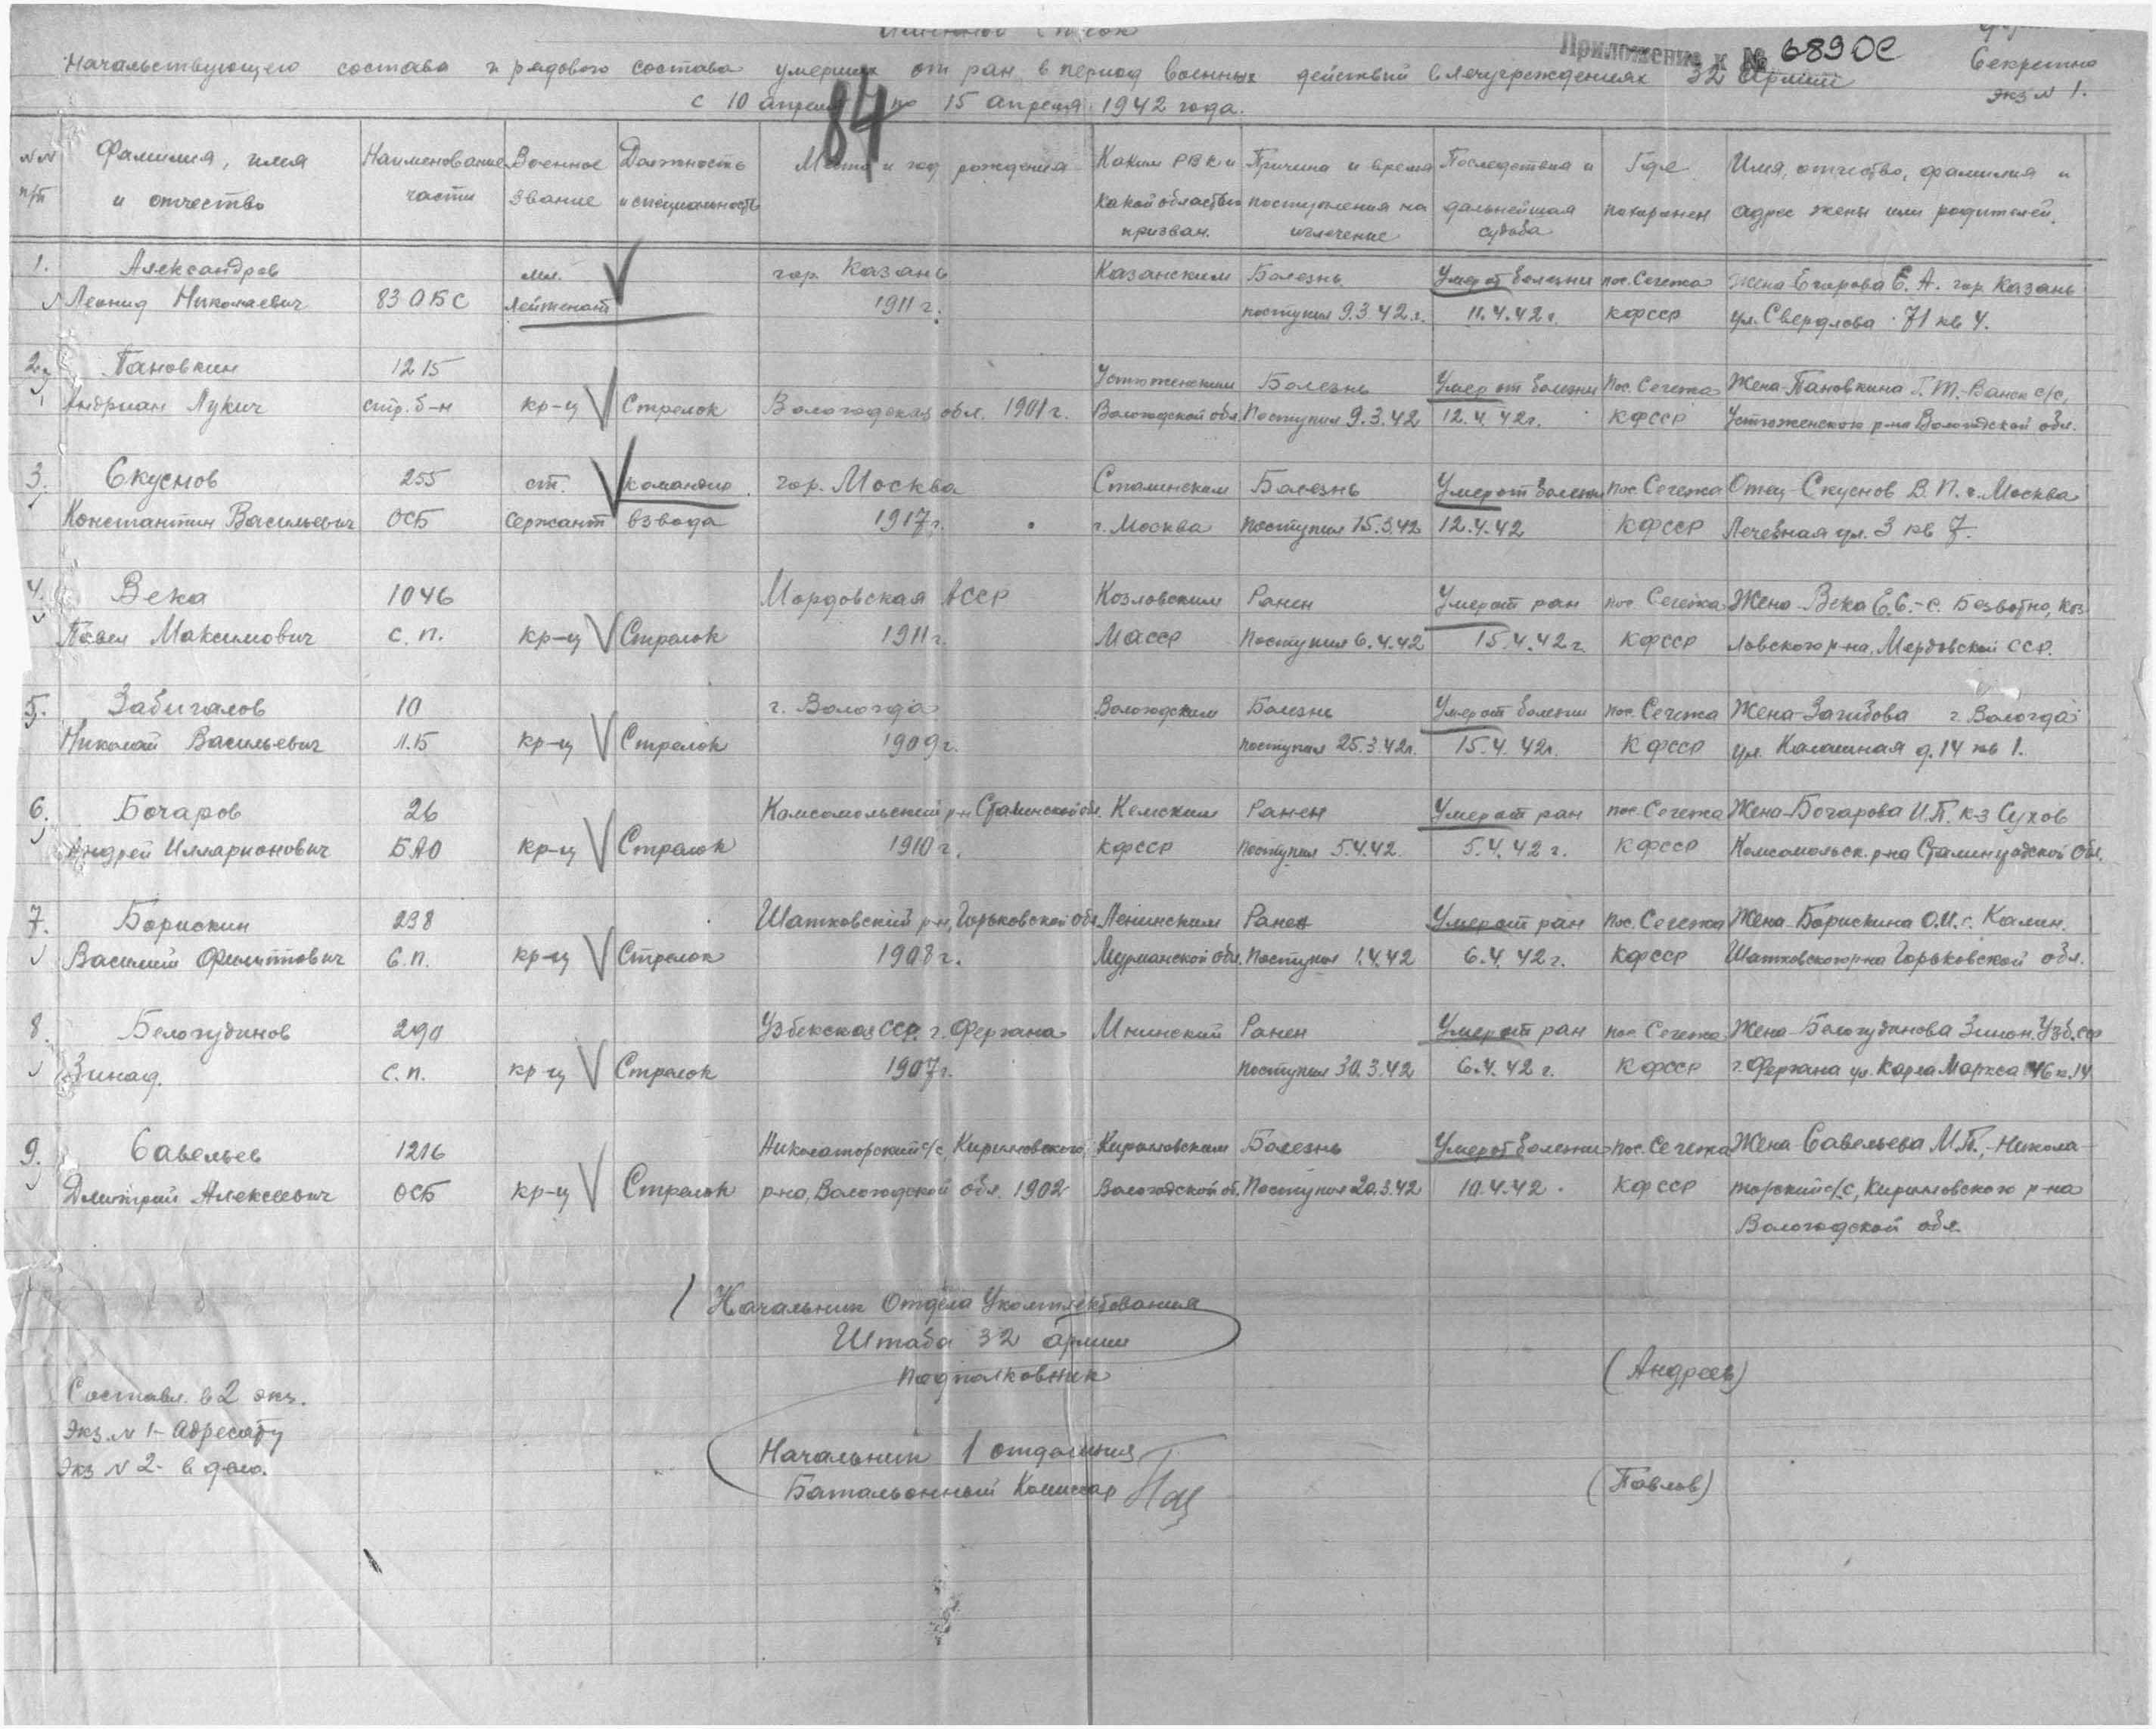 Именной список
Приложение к № 6890с
Секретно
экз № 1.
Начальствующего состава и рядового состава умерших от ран в период военных действий в лечучреждениях 32 Армии
с 10 апреля по 15 апреля 1942 года.
84
№№ п/п | Фамилия, имя и отчество | Наименование части | Военное звание | Должность и специальность | Место и год рождения | Каким РВК и какой области призван. | Причина и время поступления на излечение | Последствия и дальнейшая судьба | Где похоронен | Имя, отчество, фамилия и адрес жены или родителей.
1. Александров мл. гор. Казань Казанским Болезнь Умер от болезни пос. Сегежа Жена Егорова Е. А. гор Казань
Леонид Николаевич 83 ОБС лейтенант 1911 г. поступил 9.3.42 г. 11.4.42 г. КФССР ул. Свердлова 71 кв 4.
2. Пановкин 1215 Устюженским Болезнь Умер от болезни пос. Сегежа Жена-Пановкина Г.Т. Ванск с/с,
Андриан Лукич стр. б-н кр-ц Стрелок Вологодская обл. 1901 г. Вологодской обл. Поступил 9.3.42 12.4.42г. КФССР Устюженского р-на Вологодской обл.
3. Скуснов 255 ст. командир гор. Москва Сталинским Болезнь Умер от болезни пос. Сегежа Отец Скуснов В. П. г. Москва
Константин Васильевич ОСБ Сержант взвода 1917г. г. Москва поступил 15.3.42 12.4.42 КФССР Лечебная ул. 3 кв 7.
4. Века 1046 Мордовская АССР Козловским Ранен Умер от ран пос. Сегежа Жена-Века Е.С.-с. Безводно, Коз
Павел Максимович с. п. кр-ц Стрелок 1911г. МАССР Поступил 6.4.42 15.4.42 г. КФССР ловского р-на, Мордовской ССР.
5. Забигалов 10 г. Вологда Вологодским Болезнь Умер от болезни пос. Сегежа Жена-Загибова г. Вологда
Николай Васильевич Л.Б кр-ц Стрелок 1909г. поступил 25.3.42г. 15.4.42г. КФССР ул. Калашная д. 14 кв 1.
6. Бочаров 26 Комсомольский р-н Сталинской обл. Кемским Ранен Умер от ран пос. Сегежа Жена-Бочарова И.П. к-з Сухов
Андрей Илларионович БАО кр-ц Стрелок 1910 г. КФССР Поступил 5.4.42. 5.4.42 г. КФССР Комсомольск. р-на Сталинградской обл.
7. Борискин 238 Шатковский р-н, Горьковской обл. Ленинским Ранен Умер от ран пос. Сегежа Жена-Борискина О.И. с. Калин.
Василий Филиппович с. п. кр-ц Стрелок 1908 г. Мурманской обл. Поступил 1.4.42 6.4.42 г. КФССР Шатковского р-на Горьковской обл.
8. Белогудинов 290 Узбекская ССР. г. Фергана Мнинский Ранен Умер от ран пос. Сегежа Жена-Белогудинова Зинон. Узб. сср
Зинад. с. п. кр-ц Стрелок 1907г. Поступил 30.3.42 6.4.42 г. КФССР г. Фергана ул. Карла Маркса 46 к. 14
9. Савельев 1216 Николоторский с/с, Кирилловского, Кирилловским Болезнь Умер от болезни пос. Сегежа Жена-Савельева М.П., Никола-
Дмитрий Алексеевич ОСБ кр-ц Стрелок р-на, Вологодской обл. 1902 Вологодской об. Поступил 20.3.42 10.4.42. КФССР торский с/с, Кирилловского р-на
Вологодской обл.
Начальник Отдела Укомплектования
Штаба 32 армии
Подполковник (Андреев)
Составл. в 2 экз.
Экз. № 1- Адресату
Экз № 2- в дело.
Начальник 1 отделения
Батальонный Комиссар (Павлов)